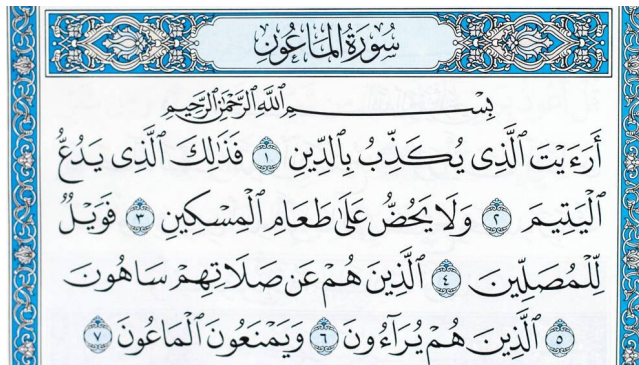 سُورَةُ الْمَاعُونِ
بِسْمِ اللَّهِ الرَّحْمَٰنِ الرَّحِيمِ
أَرَءَيْتَ ٱلَّذِى يُكَذِّبُ بِٱلدِّينِ ١ فَذَٰلِكَ ٱلَّذِى يَدُعُّ
ٱلْيَتِيمَ ٢ وَلَا يَحُضُّ عَلَىٰ طَعَامِ ٱلْمِسْكِينِ ٣ فَوَيْلٌ
لِّلْمُصَلِّينَ ٤ ٱلَّذِينَ هُمْ عَن صَلَاتِهِمْ سَاهُونَ
٥ ٱلَّذِينَ هُمْ يُرَآءُونَ ٦ وَيَمْنَعُونَ ٱلْمَاعُونَ ٧